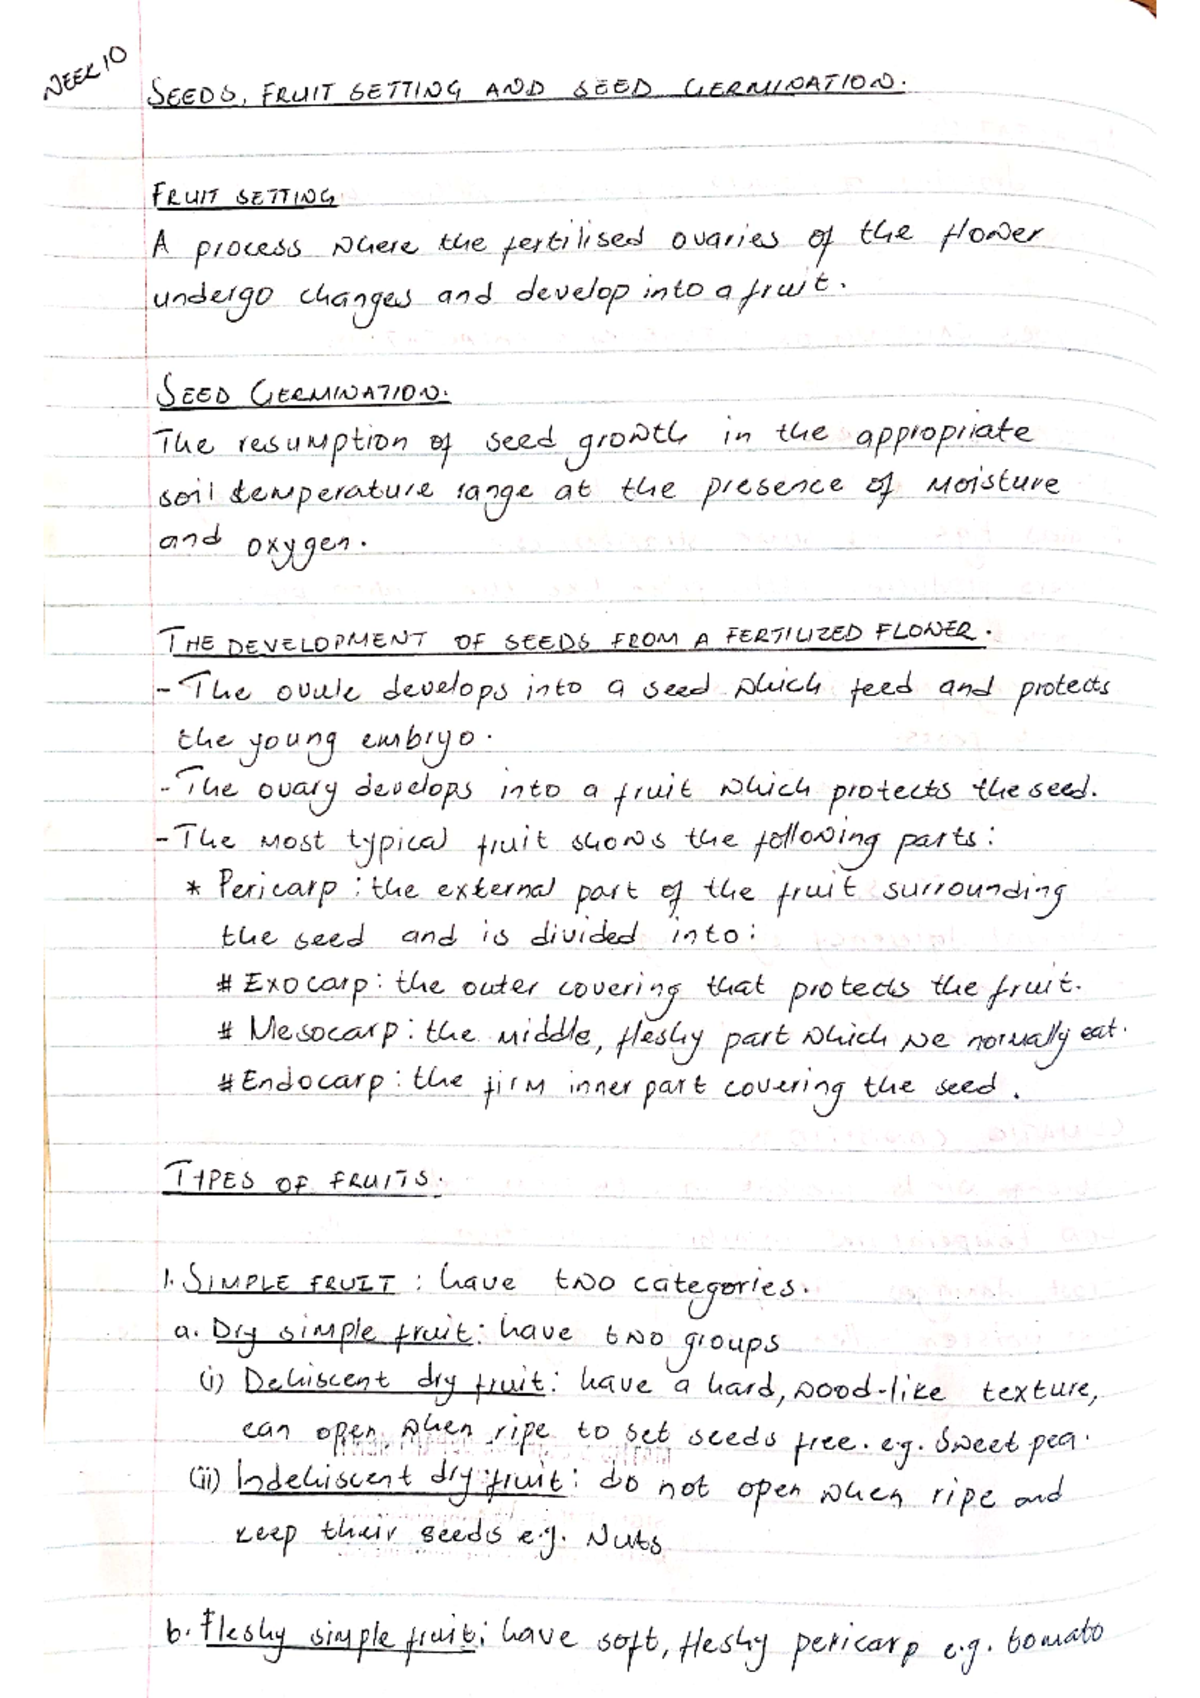 WEEK 10
SEEDS, FRUIT SETTING AND SEED GERMINATION.
FRUIT SETTING
A process where the fertilised ovaries of the flower
undergo changes and develop into a fruit.
SEED GERMINATION.
The resumption of seed growth in the appropriate
soil temperature range at the presence of moisture
and oxygen.
THE DEVELOPMENT OF SEEDS FROM A FERTILIZED FLOWER.
- The ovule develops into a seed which feed and protects
the young embryo.
- The ovary develops into a fruit which protects the seed.
- The most typical fruit shows the following parts:
* Pericarp: the external part of the fruit surrounding
the seed and is divided into:
# Exocarp: the outer covering that protects the fruit.
# Mesocarp: the middle, fleshy part which we normally eat.
# Endocarp: the firm inner part covering the seed.
TYPES OF FRUITS.
1. SIMPLE FRUIT: have two categories.
a. Dry simple fruit: have two groups
(i) Dehiscent dry fruit: have a hard, wood-like texture,
can open when ripe to set seeds free. e.g. Sweet pea.
(ii) Indehiscent dry fruit: do not open when ripe and
keep their seeds e.g. Nuts
b. Fleshy simple fruit: have soft, fleshy pericarp e.g. tomato